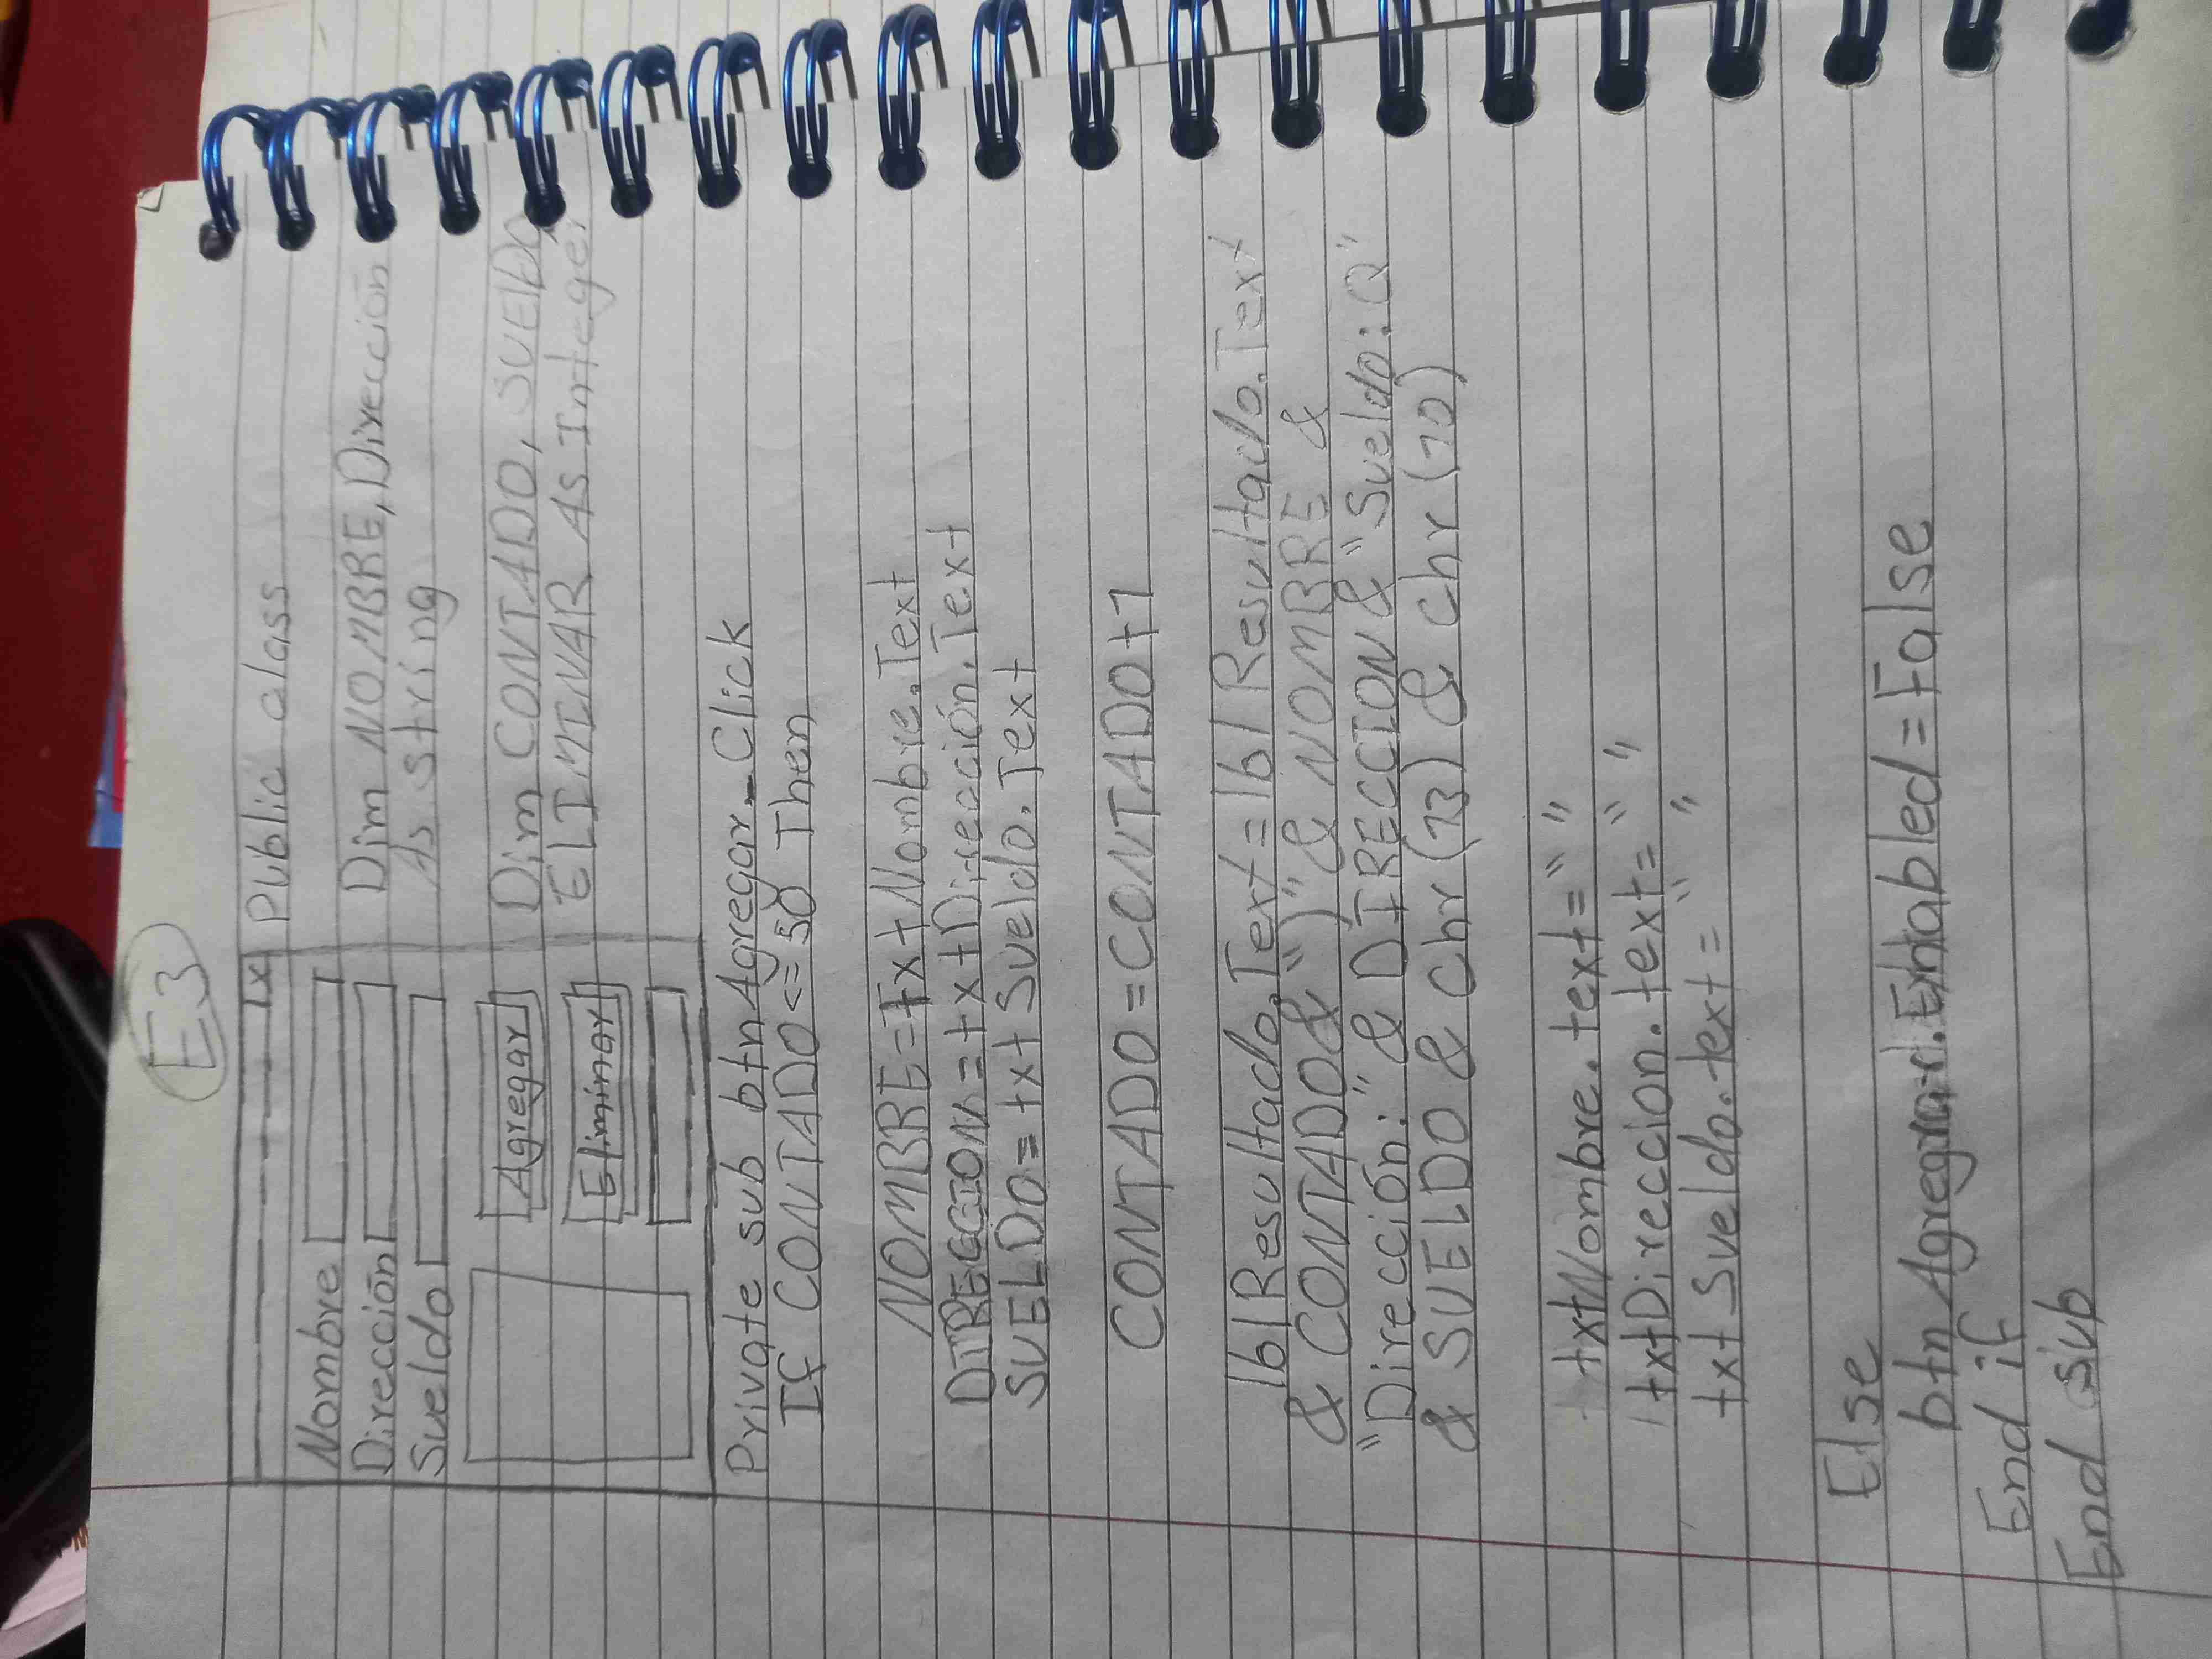 E3
x
Public class
Nombre
Dim NOMBRE, Dirección
Dirección
As string
Sueldo
Agregar
Dim CONTADO, SUELDO,
Eliminar
ELIMINAR As Integer
Private sub btnAgregar_Click
If CONTADO <= 50 Then
NOMBRE = txtNombre.Text
DIRECCION = txtDirección.Text
SUELDO = txtSueldo.Text
CONTADO = CONTADO+1
lblResultado.Text = lblResultado.Text
& CONTADO & ")" & NOMBRE &
"Dirección:" & DIRECCION & "Sueldo: Q"
& SUELDO & Chr (13) & Chr (10)
txtNombre.text = " "
txtDireccion.text = " "
txtSueldo.text = " "
Else
btnAgregar.Enabled = False
End if
End sub